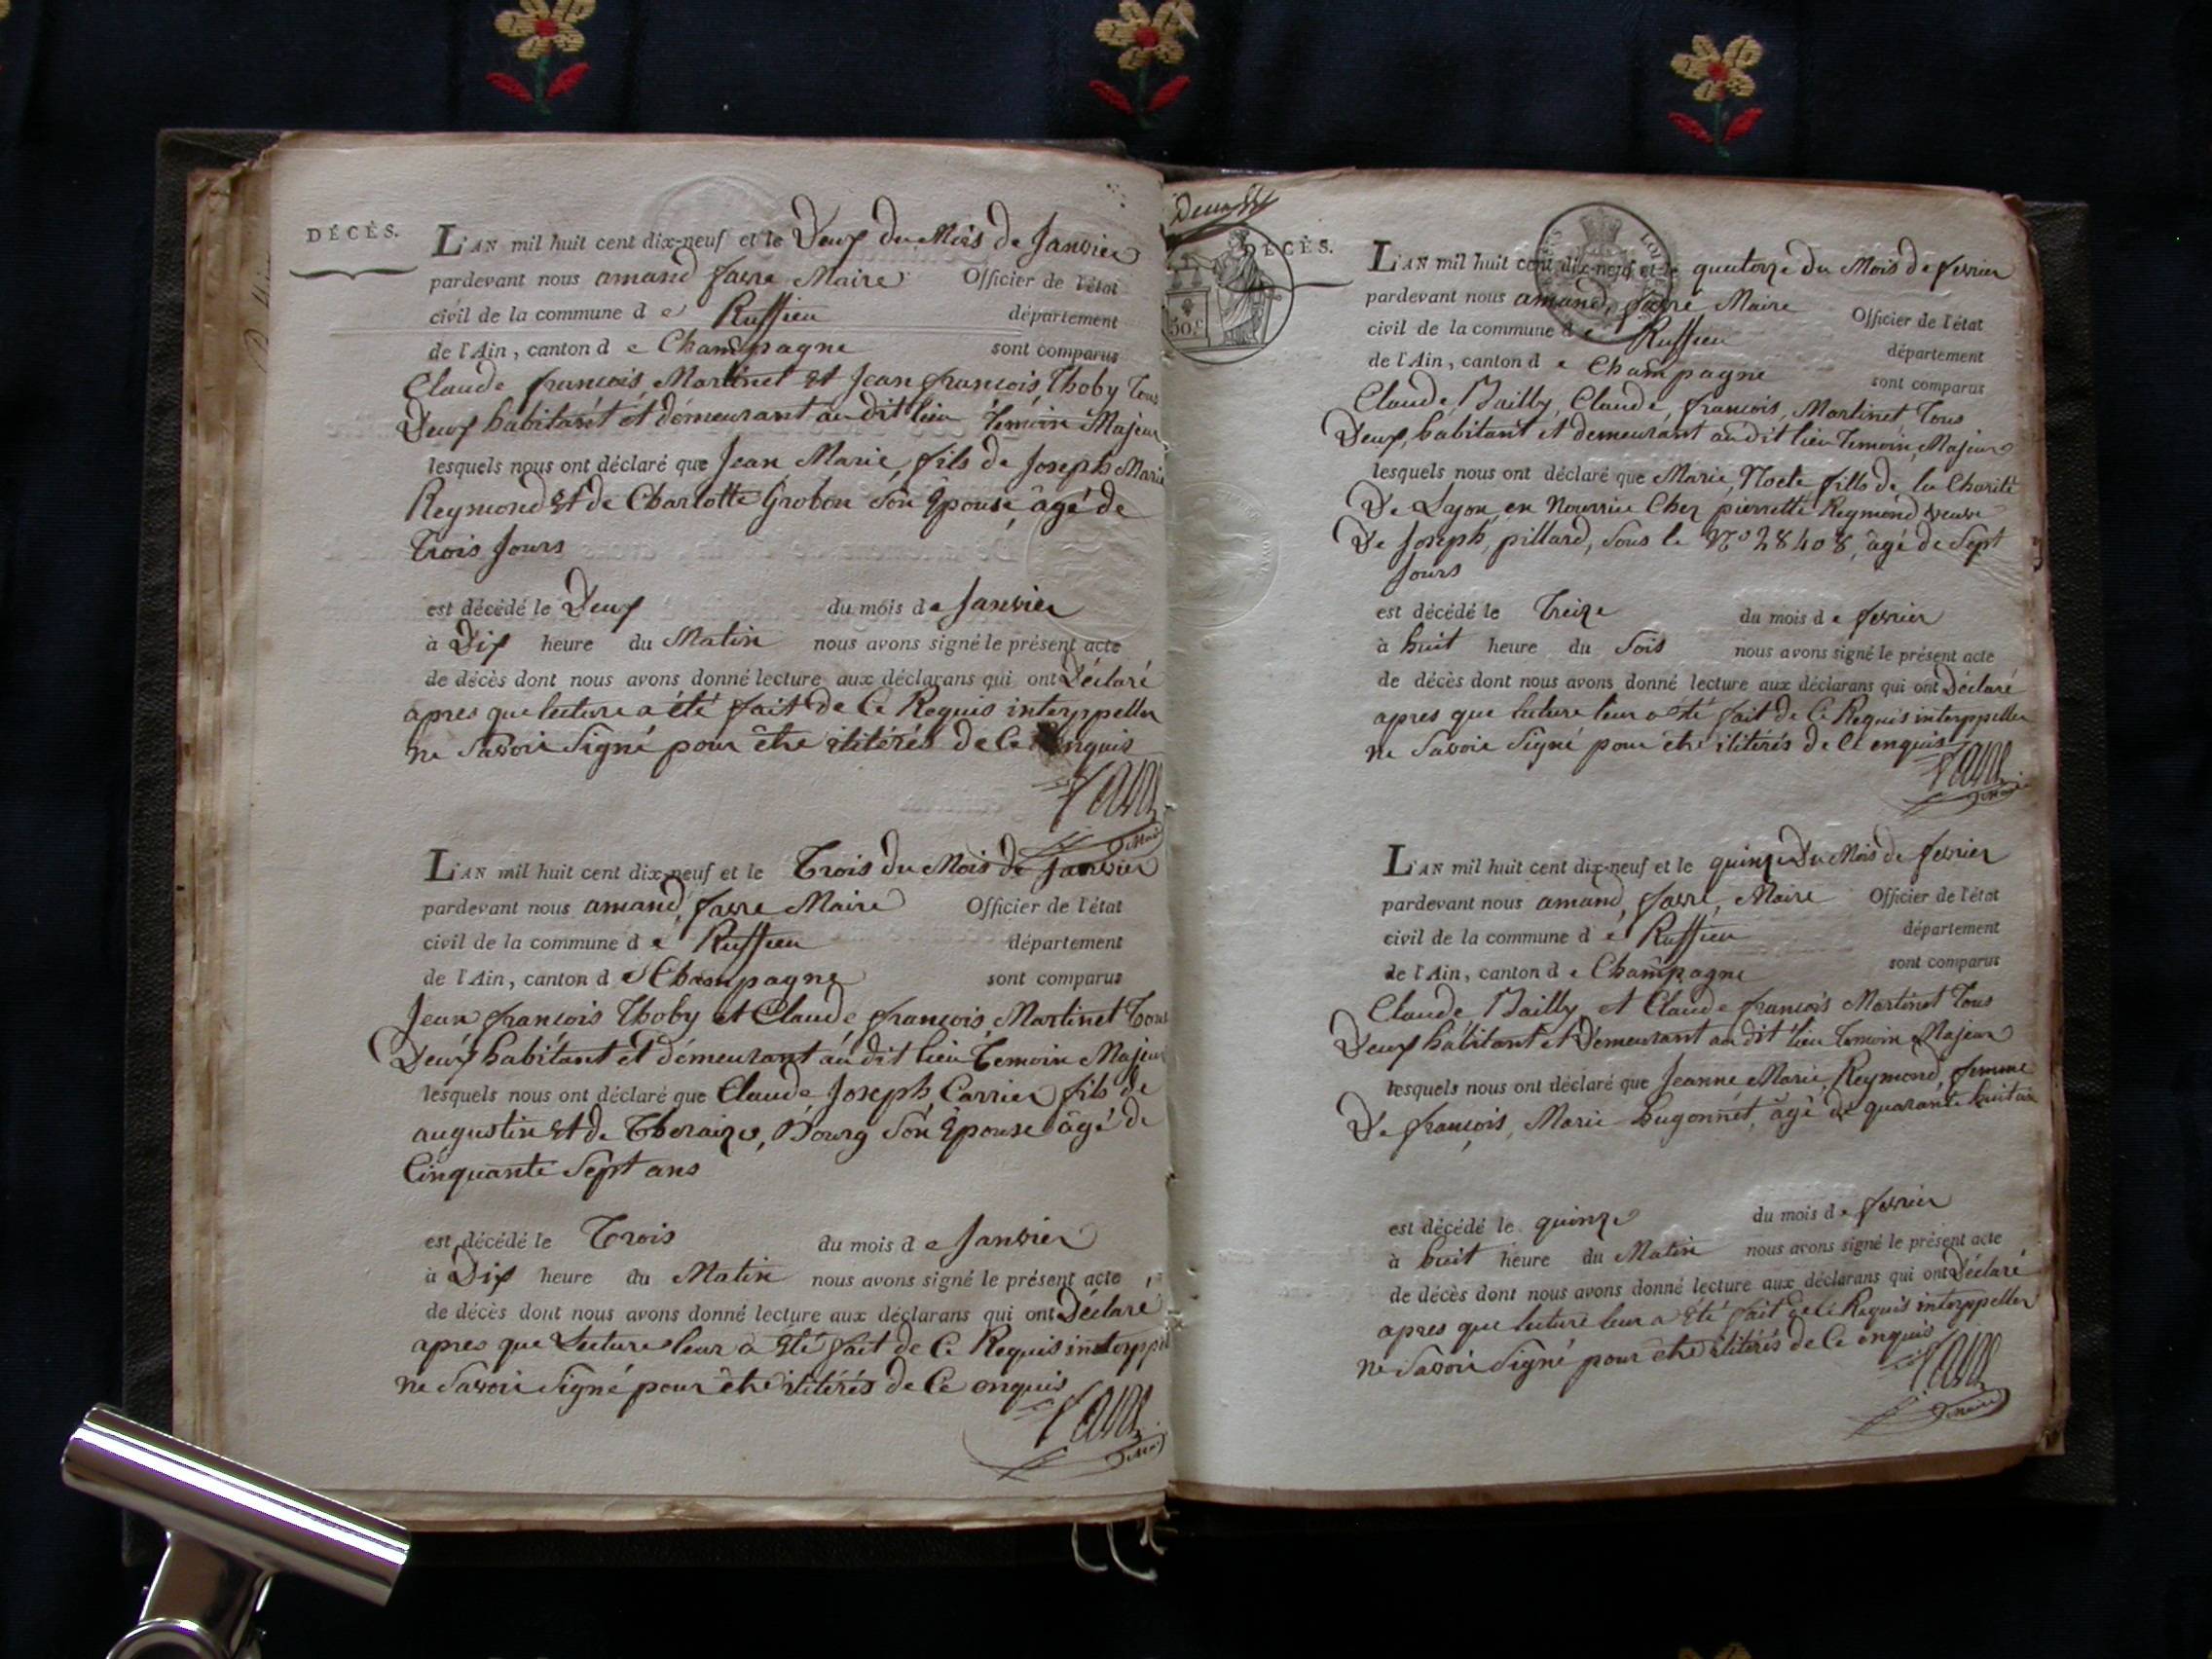 DÉCÈS.
L'AN mil huit cent dix-neuf et le Deux du Mois de Janvier
pardevant nous amand favre Maire Officier de l'état
civil de la commune d e Ruffieu département
de l'Ain, canton d e Champagne sont comparus
Claude françois Martinet et Jean françois Thoby Tous
Deux habitant et demeurant au dit lieu temoin Majeur
lesquels nous ont déclaré que Jean Marie fils de Joseph Marie
Reymond et de Charlotte Grobon Son Epouse âgé de
Trois Jours
est décédé le Deux du mois de Janvier
à Dix heure du Matin nous avons signé le présent acte
de décès dont nous avons donné lecture aux déclarans qui ont Déclaré
apres que lecture a été fait de Ce Requis interppeller
ne Savoir Signé pour être ilitérés de Ce enquis
favre
Maire
L'AN mil huit cent dix-neuf et le Trois du Mois de Janvier
pardevant nous amand favre Maire Officier de l'état
civil de la commune d e Ruffieu département
de l'Ain, canton d e Champagne sont comparus
Jean françois Thoby et Claude françois Martinet Tous
Deux habitant et demeurant au dit lieu Temoin Majeur
lesquels nous ont déclaré que Claude Joseph Carrier fils de
augustin et de Theraize, Bourg Son Epouse âgé de
Cinquante Sept ans
est décédé le Trois du mois d e Janvier
à Dix heure du Matin nous avons signé le présent acte
de décès dont nous avons donné lecture aux déclarans qui ont Déclaré
apres que Lecture leur a Eté fait de Ce Requis interppel
ne Savoir Signé pour être ilitérés de Ce enquis
favre
Maire
DÉCÈS.
50.c
L'AN mil huit cent dix-neuf et le quatorze du Mois de fevrier
pardevant nous amand, favre Maire Officier de l'état
civil de la commune d e Ruffieu département
de l'Ain, canton d e Champagne sont comparus
Claude Bailly, Claude, françois, Martinet, Tous
Deux, habitant et demeurant au dit lieu Temoin, Majeur
lesquels nous ont déclaré que Marie, Noele fille de la Charité
De Lyon, en Nourrice Chez pierrette Reymond veuve
De Joseph, pillard, Sous le No 28408, âgé de Sept
Jours
est décédé le Treize du mois d e fevrier
à huit heure du Soir nous avons signé le présent acte
de décès dont nous avons donné lecture aux déclarans qui ont Déclaré
apres que lecture leur a été fait de Ce Requis interppeller
ne Savoir Signé pour être ilitérés de Ce enquis
favre
Maire
L'AN mil huit cent dix-neuf et le quinze Du Mois de fevrier
pardevant nous amand, favre, Maire Officier de l'état
civil de la commune d e Ruffieu département
de l'Ain, canton d e Champagne sont comparus
Claude Bailly et Claude françois Martinet Tous
Deux habitant et Demeurant au dit lieu temoin Majeur
lesquels nous ont déclaré que Jeanne Marie Reymond, femme
De françois, Marie hugonnet, âgé de quarante huit an
est décédé le quinze du mois d e fevrier
à huit heure du Matin nous avons signé le présent acte
de décès dont nous avons donné lecture aux déclarans qui ont Déclaré
apres que lecture leur a Eté fait de Ce Requis interppeller
ne Savoir Signé pour être ilitérés de Ce enquis
favre
Maire